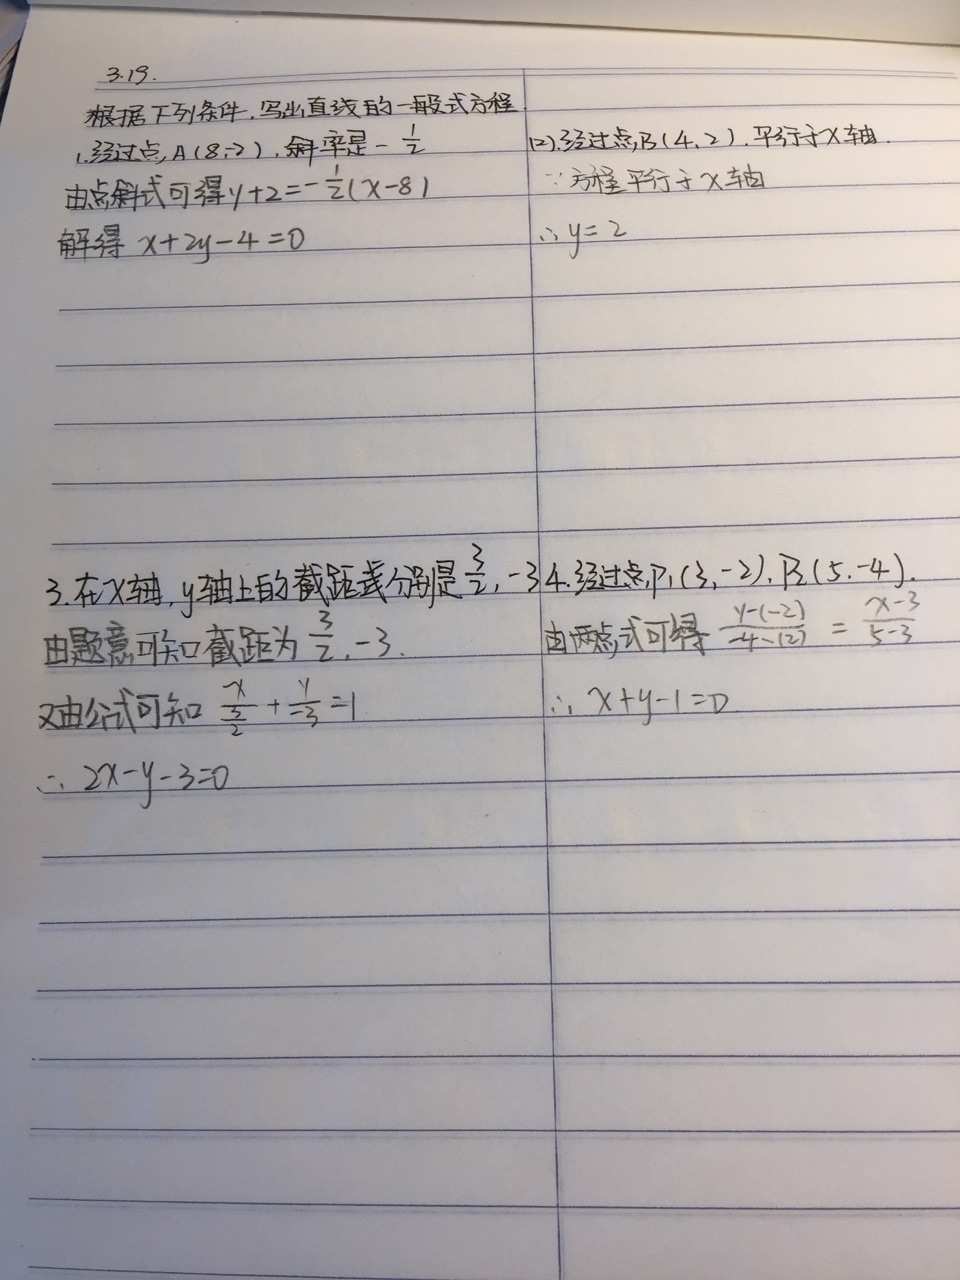 3.19.
根据下列条件,写出直线的一般式方程
1.经过点,A(8,-2),斜率是-1/2
由点斜式可得y+2=-1/2(x-8)
解得 x+2y-4=0
(2).经过点,B(4,2),平行于x轴.
∵方程平行于x轴
∴y=2
3.在x轴,y轴上的截距或分别是3/2,-3
由题意可知截距为3/2,-3.
又由公式可知 x/(3/2)+y/-3=1
∴2x-y-3=0
4.经过点,P₁(3,-2),P₂(5,-4).
由两点式可得 y-(-2)/-4-(2) = x-3/5-3
∴x+y-1=0